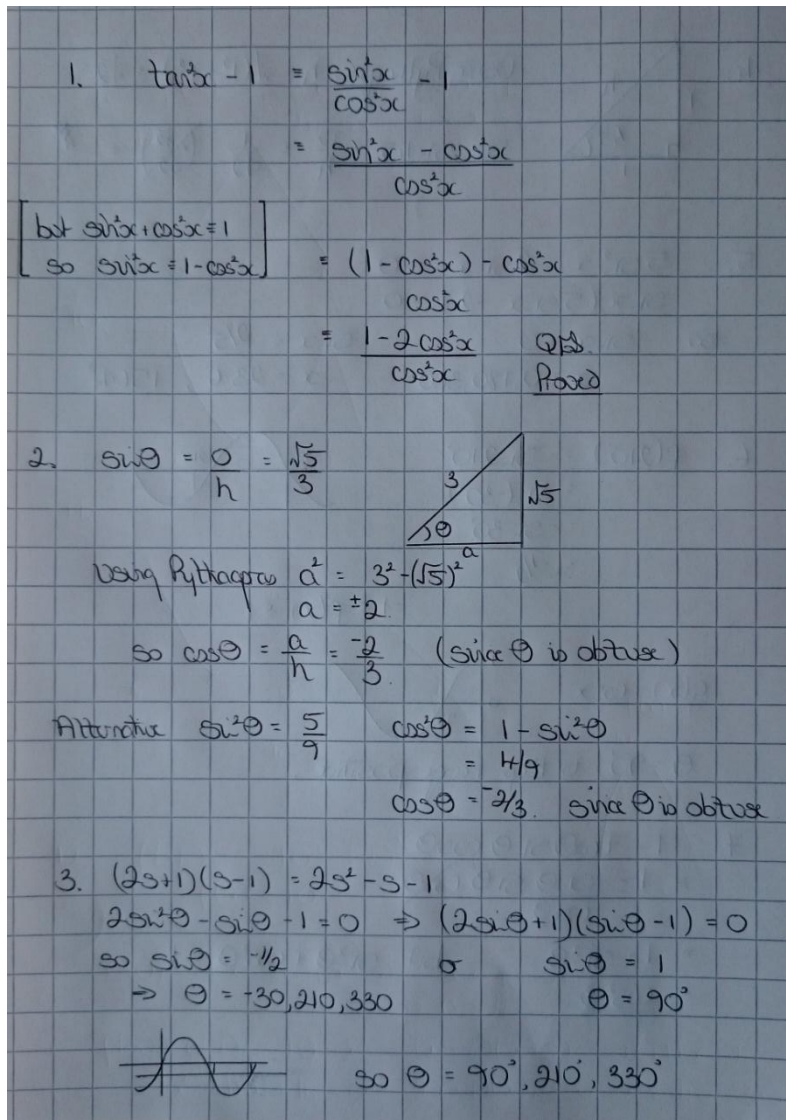 1. tan²x - 1 ≡ sin²x/cos²x - 1
≡ (sin²x - cos²x)/cos²x
[but sin²x + cos²x ≡ 1
so sin²x ≡ 1 - cos²x]
≡ ((1 - cos²x) - cos²x)/cos²x
≡ (1 - 2cos²x)/cos²x QED.
Proved
2. sinθ = o/h = √5/3
3
√5
θ
a
Using Pythagoras a² = 3² - (√5)²
a = ±2
so cosθ = a/h = -2/3. (since θ is obtuse)
Alternative sin²θ = 5/9 cos²θ = 1 - sin²θ
= 4/9
cosθ = -2/3. since θ is obtuse
3. (2s+1)(s-1) = 2s² - s - 1
2sin²θ - sinθ - 1 = 0 ⇒ (2sinθ+1)(sinθ-1) = 0
so sinθ = -1/2 or sinθ = 1
⇒ θ = -30, 210, 330 θ = 90°
so θ = 90°, 210°, 330°